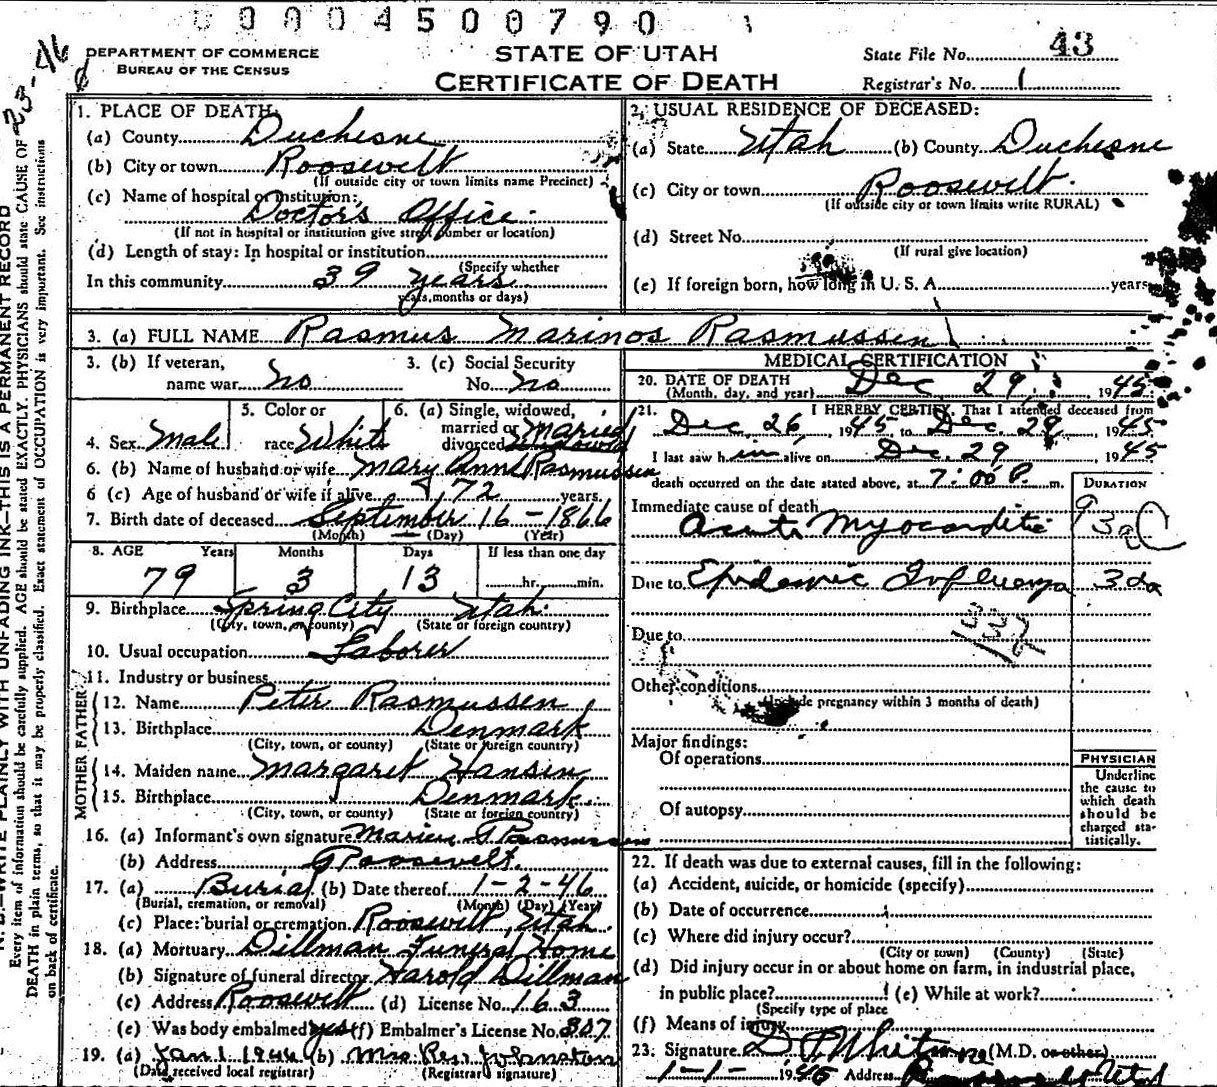 0004500790
23-46
DEPARTMENT OF COMMERCE
BUREAU OF THE CENSUS
STATE OF UTAH
CERTIFICATE OF DEATH
State File No. 43
Registrar's No. 1
N. B.—WRITE PLAINLY WITH UNFADING INK—THIS IS A PERMANENT RECORD
Every item of information should be carefully supplied. AGE should be stated EXACTLY. PHYSICIANS should state CAUSE OF
DEATH in plain terms, so that it may be properly classified. Exact statement of OCCUPATION is very important. See instructions
on back of certificate.
1. PLACE OF DEATH:
(a) County Duchesne
(b) City or town Roosevelt
(If outside city or town limits name Precinct)
(c) Name of hospital or institution:
Doctor's Office
(If not in hospital or institution give street number or location)
(d) Length of stay: In hospital or institution
(Specify whether
In this community 39 years
years, months or days)
2. USUAL RESIDENCE OF DECEASED:
(a) State Utah (b) County Duchesne
(c) City or town Roosevelt
(If outside city or town limits write RURAL)
(d) Street No.
(If rural give location)
(e) If foreign born, how long in U. S. A. years
3. (a) FULL NAME Rasmus Marinos Rasmussen
3. (b) If veteran, name war No
3. (c) Social Security No. no
4. Sex Male
5. Color or race White
6. (a) Single, widowed, married or divorced Married
6. (b) Name of husband or wife Mary Ann Rasmussen
6 (c) Age of husband or wife if alive 72 years.
7. Birth date of deceased September 16 - 1866
(Month) (Day) (Year)
8. AGE Years Months Days If less than one day
79 3 13 hr. min.
9. Birthplace Spring City Utah
(City, town, or county) (State or foreign country)
10. Usual occupation Laborer
11. Industry or business
FATHER
12. Name Peter Rasmussen
13. Birthplace Denmark
(City, town, or county) (State or foreign country)
MOTHER
14. Maiden name Margaret Hansen
15. Birthplace Denmark
(City, town, or county) (State or foreign country)
16. (a) Informant's own signature Rasmussen
(b) Address Roosevelt
17. (a) Burial (b) Date thereof 1-2-46
(Burial, cremation, or removal) (Month) (Day) (Year)
(c) Place: burial or cremation Roosevelt, Utah
18. (a) Mortuary Dillman Funeral Home
(b) Signature of funeral director Harold Dillman
(c) Address Roosevelt (d) License No. 163
(e) Was body embalmed yes (f) Embalmer's License No. 307
19. (a) Jan 1 1946 (b) Mrs Johnston
(Date received local registrar) (Registrar's signature)
MEDICAL CERTIFICATION
20. DATE OF DEATH Dec 29, 1945
(Month, day, and year)
21. I HEREBY CERTIFY, That I attended deceased from
Dec. 26, 1945 to Dec. 29, 1945
I last saw him alive on Dec. 29 1945
death occurred on the date stated above, at 7:00 P. m.
DURATION
Immediate cause of death
Acute Myocarditis
Due to Epidemic Influenza 3 da
Due to
Other conditions
(Include pregnancy within 3 months of death)
Major findings:
Of operations
Of autopsy
PHYSICIAN
Underline
the cause to
which death
should be
charged sta-
tistically.
22. If death was due to external causes, fill in the following:
(a) Accident, suicide, or homicide (specify)
(b) Date of occurrence
(c) Where did injury occur?
(City or town) (County) (State)
(d) Did injury occur in or about home on farm, in industrial place,
in public place? (e) While at work?
(Specify type of place
(f) Means of injury
23. Signature (M.D. or other)
1-1- 1946 Address